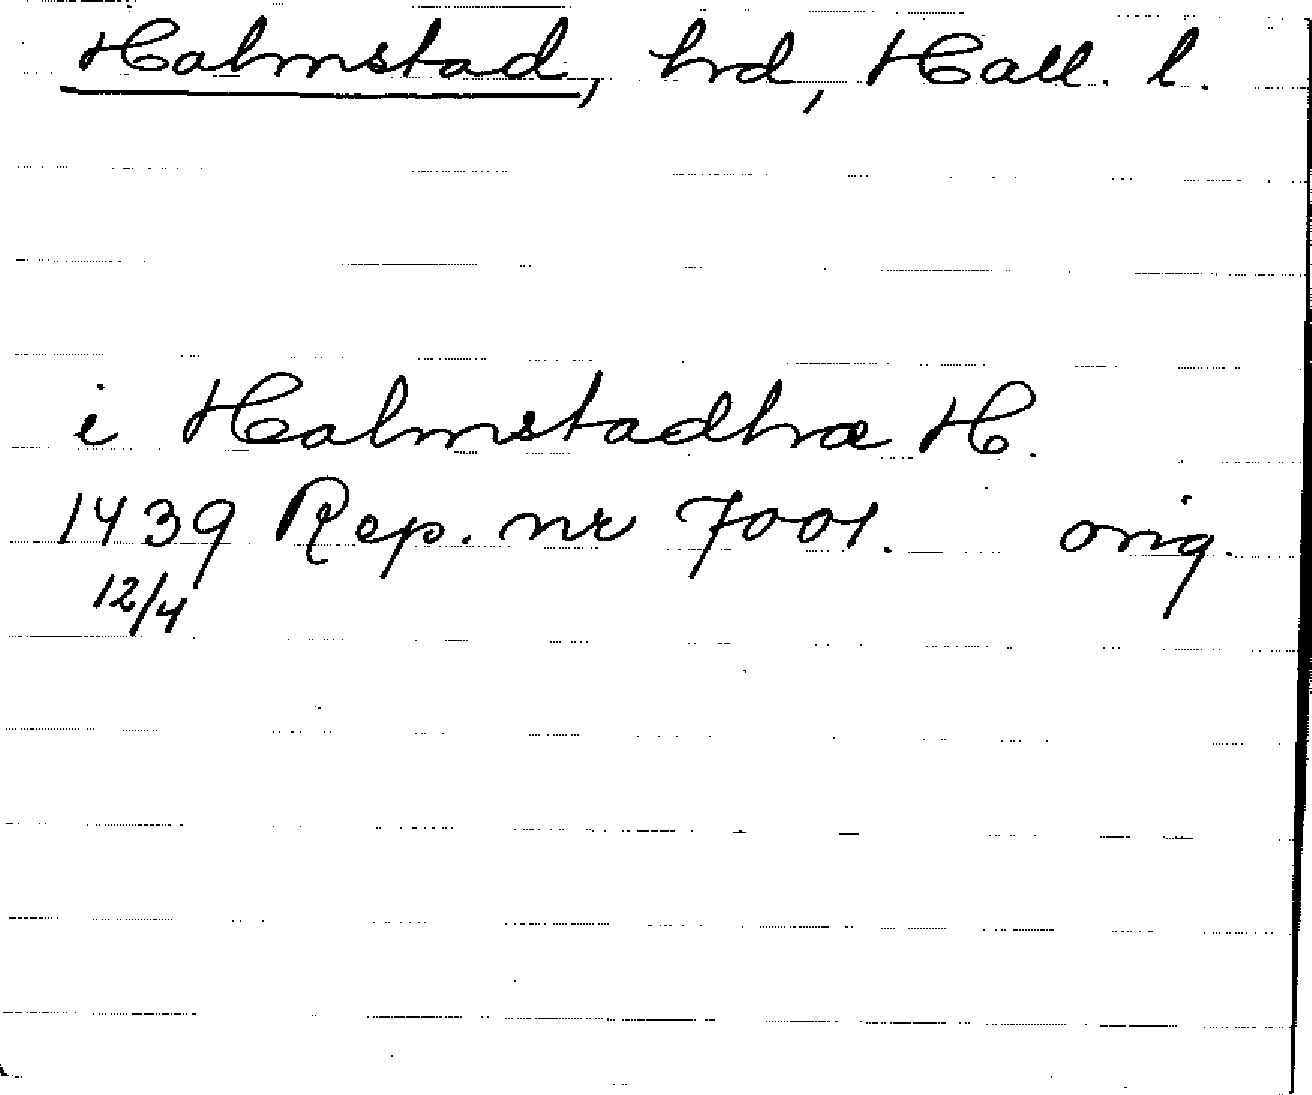 Halmstad, hrd, Hall. l.
i Halmstadhræ H.
1439 Rep. nr 7001. orig.
12/4